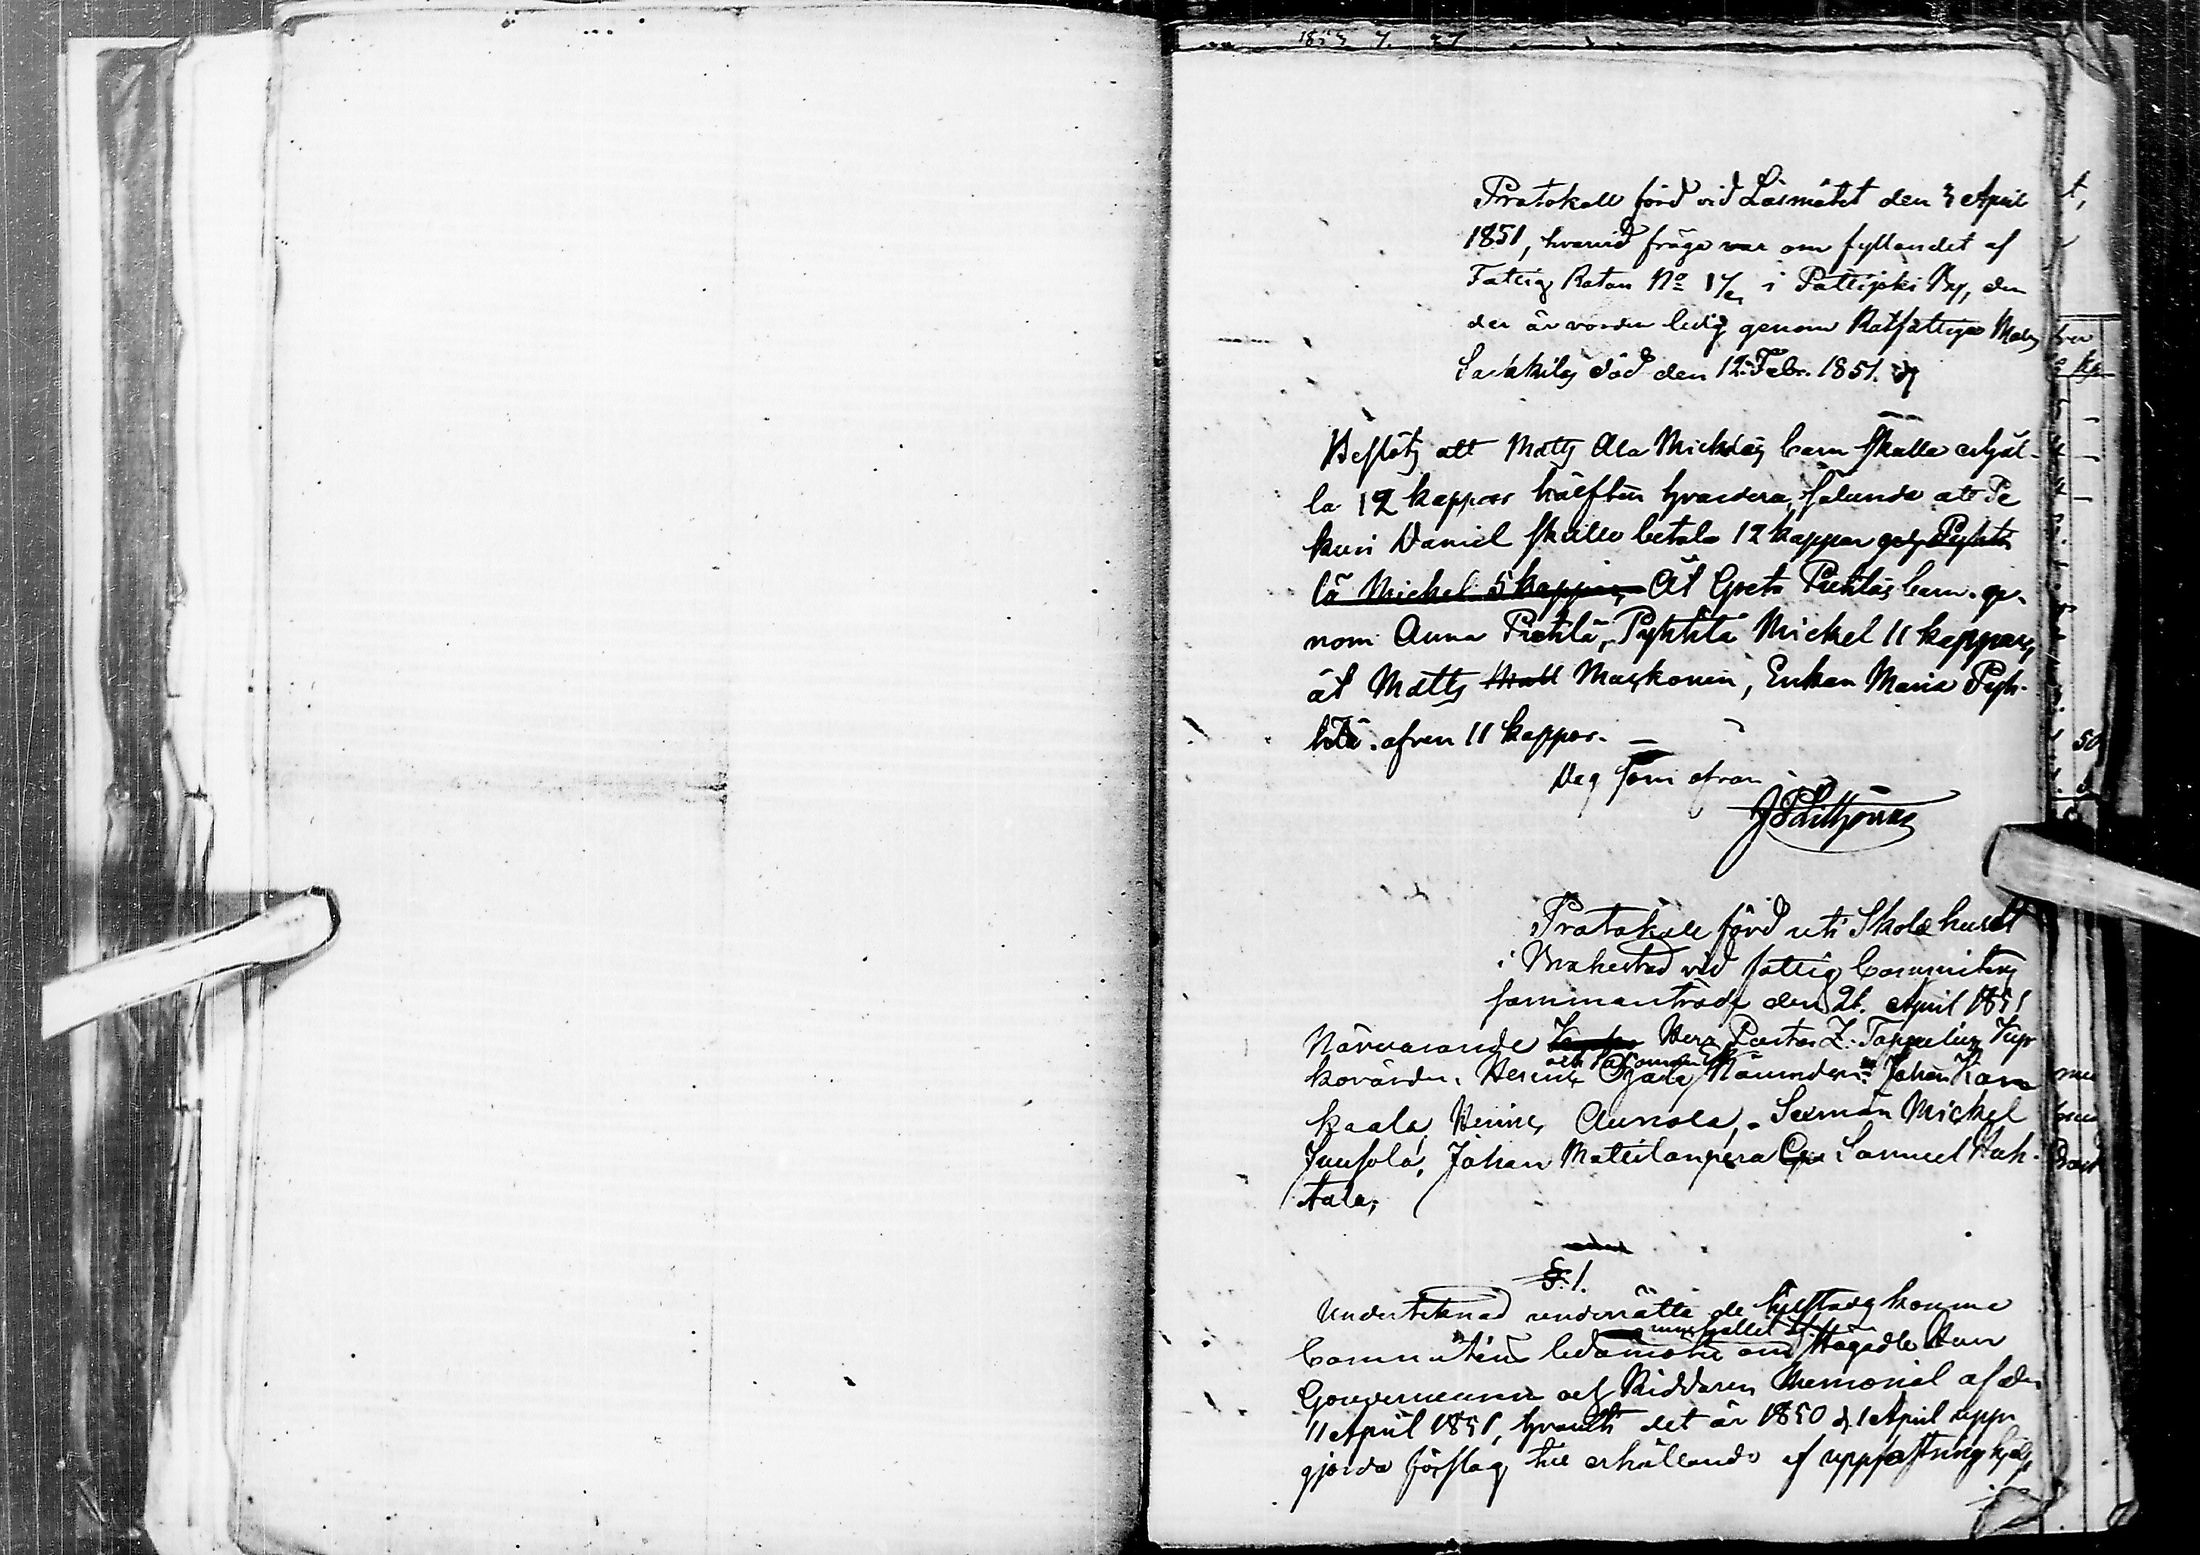 Protokoll förd vid Läsmötet den 3 April
1851, hvarvid fråga var om fyllandet af
Fattig Rotan No 17 i Pattijoki By, den
der är vorden ledig genom Rotfattige Matts
död den 12. Febr. 1851.
Beslöts att Matts Ala Mickläs barn skulle erhål-
la 12 kappar hälften hvardera, sålunda att Pe
kuri Daniel skulle betala 12 kappar och Pyhti
lä Michel 5 kappar, Åt Greta Pietiläs barn ge-
nom Anna Pietilä, Pyhtilä Mickel 11 kappar,
åt Matts Matt Maskonen, Enkan Maria Pyh-
tilä äfven 11 kappar.
Dag som ofvan
Protokoll förd uti Skolæhuset
i Brahestad vid fattig Committens
sammanträde den 21. April 1851
Närvarande Herr Pastor Z. Toppelius Kyr
kovärden Henric Ojala Nämndem: Johan Kan
kaala, Henric Aunola, Sexman Mickel
Juusola, Johan Matilanpera Samuel Huh-
tala,
§. 1.
Undertecknad underrätta de tillstädes komne
Committéns ledamöter om innehållet af Högädle Herr
Gouverneurens och Riddaren Memorial af den
11 April 1851, hvaruti det år 1850 d. 1 April upp
gjorda förslag till erhållande af uppfostringshjelp